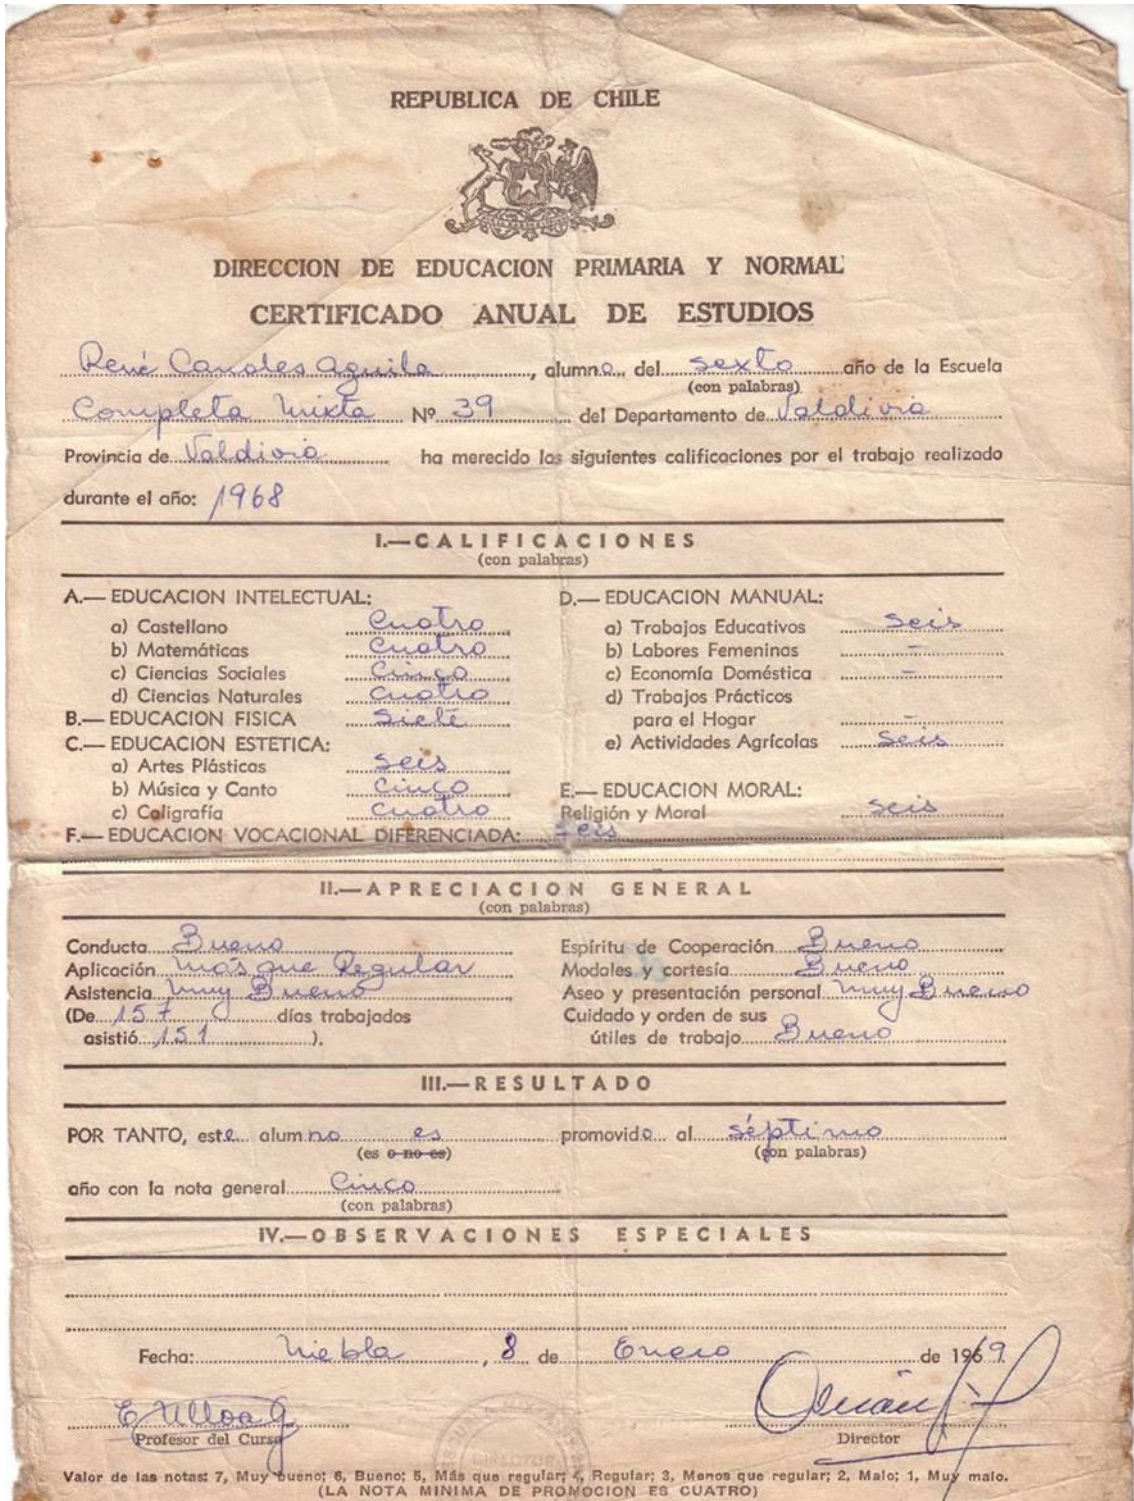 REPUBLICA DE CHILE
DIRECCION DE EDUCACION PRIMARIA Y NORMAL
CERTIFICADO ANUAL DE ESTUDIOS
René Canales Aguila, alumno del sexto año de la Escuela
(con palabras)
Completa Mixta Nº 39 del Departamento de Valdivia
Provincia de Valdivia ha merecido las siguientes calificaciones por el trabajo realizado
durante el año: 1968
I.—CALIFICACIONES
(con palabras)
A.— EDUCACION INTELECTUAL:
a) Castellano Cuatro
b) Matemáticas Cuatro
c) Ciencias Sociales Cinco
d) Ciencias Naturales Cuatro
B.— EDUCACION FISICA Siete
C.— EDUCACION ESTETICA:
a) Artes Plásticas Seis
b) Música y Canto Cinco
c) Caligrafía Cuatro
D.— EDUCACION MANUAL:
a) Trabajos Educativos Seis
b) Labores Femeninas -
c) Economía Doméstica -
d) Trabajos Prácticos
para el Hogar -
e) Actividades Agrícolas Seis
E.— EDUCACION MORAL:
Religión y Moral Seis
F.— EDUCACION VOCACIONAL DIFERENCIADA: Seis
II.—APRECIACION GENERAL
(con palabras)
Conducta Bueno
Aplicación más que Regular
Asistencia Muy Bueno
(De 157 días trabajados
asistió 151 ).
Espíritu de Cooperación Bueno
Modales y cortesía Bueno
Aseo y presentación personal Muy Bueno
Cuidado y orden de sus
útiles de trabajo Bueno
III.—RESULTADO
POR TANTO, este alumno es promovido al séptimo
(es o no es) (con palabras)
año con la nota general Cinco
(con palabras)
IV.—OBSERVACIONES ESPECIALES
Fecha: Niebla, 8 de Enero de 1969
E Ulloa G
Profesor del Curso
Director
DIRECTOR
Valor de las notas: 7, Muy bueno; 6, Bueno; 5, Más que regular; 4, Regular; 3, Menos que regular; 2, Malo; 1, Muy malo.
(LA NOTA MINIMA DE PROMOCION ES CUATRO)